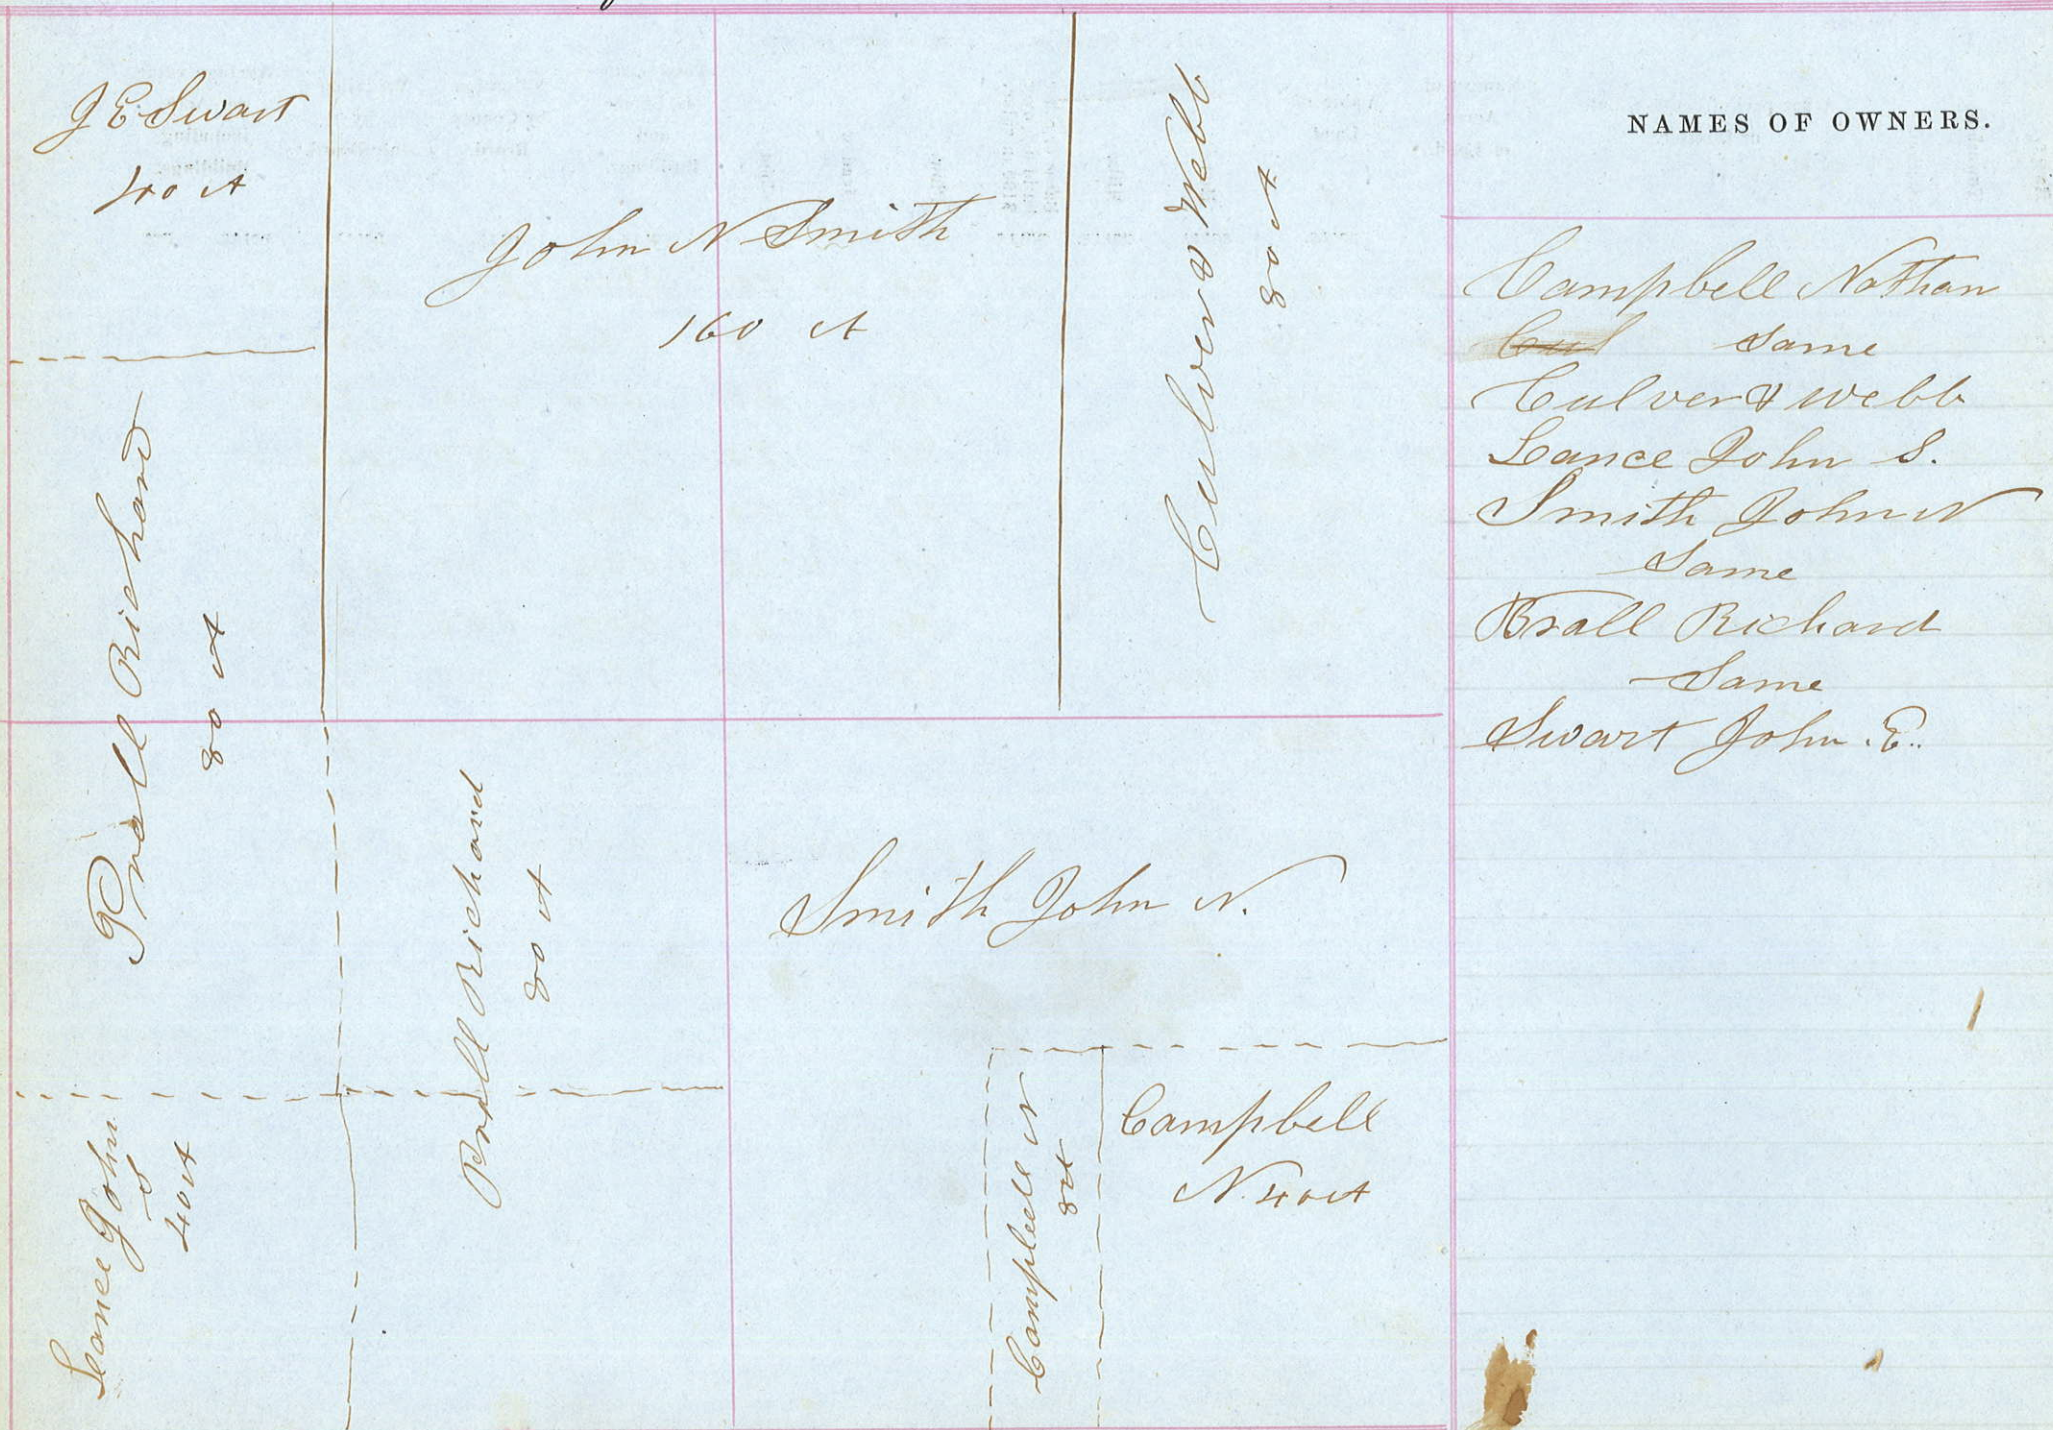 J E Swart
40 A
John N Smith
160 A
Culver & Webb
80 A
Prall Richard
80 A
Prall Richard
80 A
Smith John N.
Lance John
S
40 A
Campbell N
8 A
Campbell
N. 40 A
NAMES OF OWNERS.
Campbell Nathan
Cul Same
Culver & Webb
Lance John S.
Smith John N
Same
Prall Richard
Same
Swart John . E.